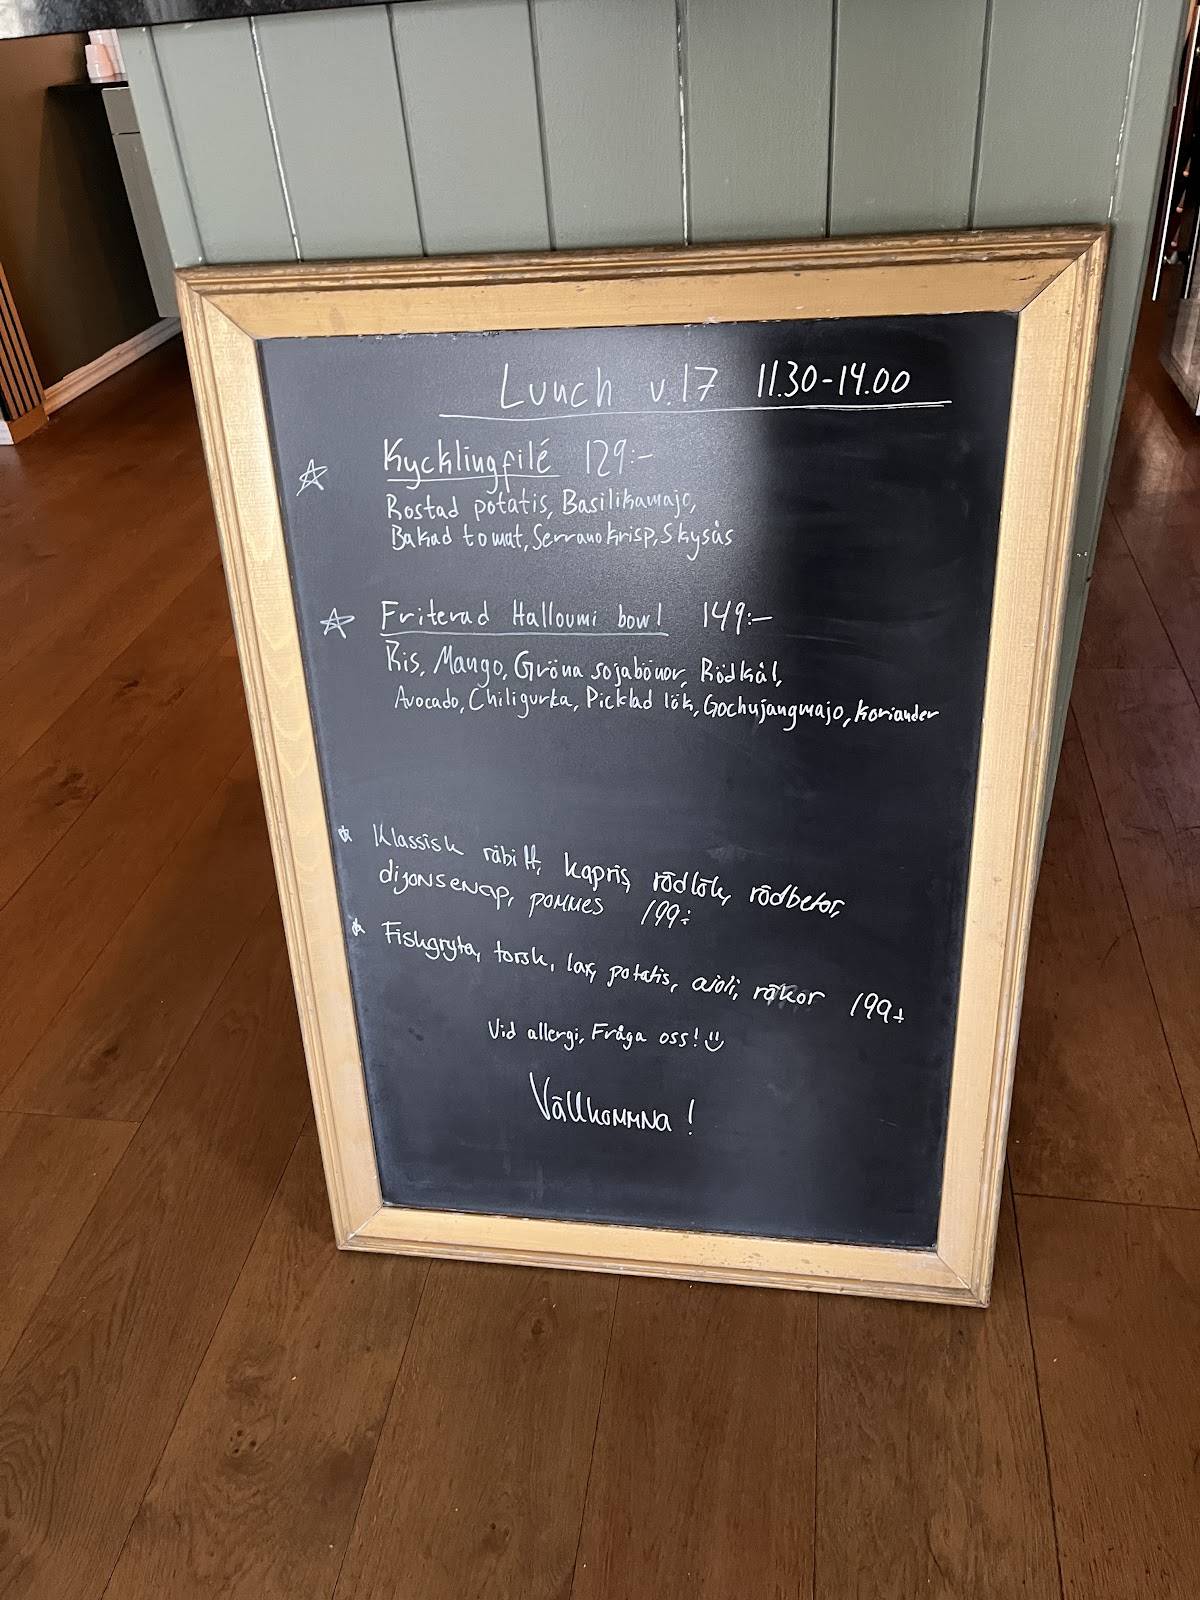 Lunch v.17 11.30-14.00
Kycklingfilé 129:-
Rostad potatis, Basilikamajo,
Bakad tomat, Serranokrisp, Skysås
Friterad Halloumi bowl 149:-
Ris, Mango, Gröna sojabönor, Rödkål,
Avocado, Chiligurka, Picklad lök, Gochujangmajo, Koriander
Klassisk råbiff, kapris, rödlök, rödbetor,
dijonsenap, pommes 199:-
Fiskgryta, torsk, lax, potatis, aioli, räkor 199:-
Vid allergi, Fråga oss!
Vällkommna!